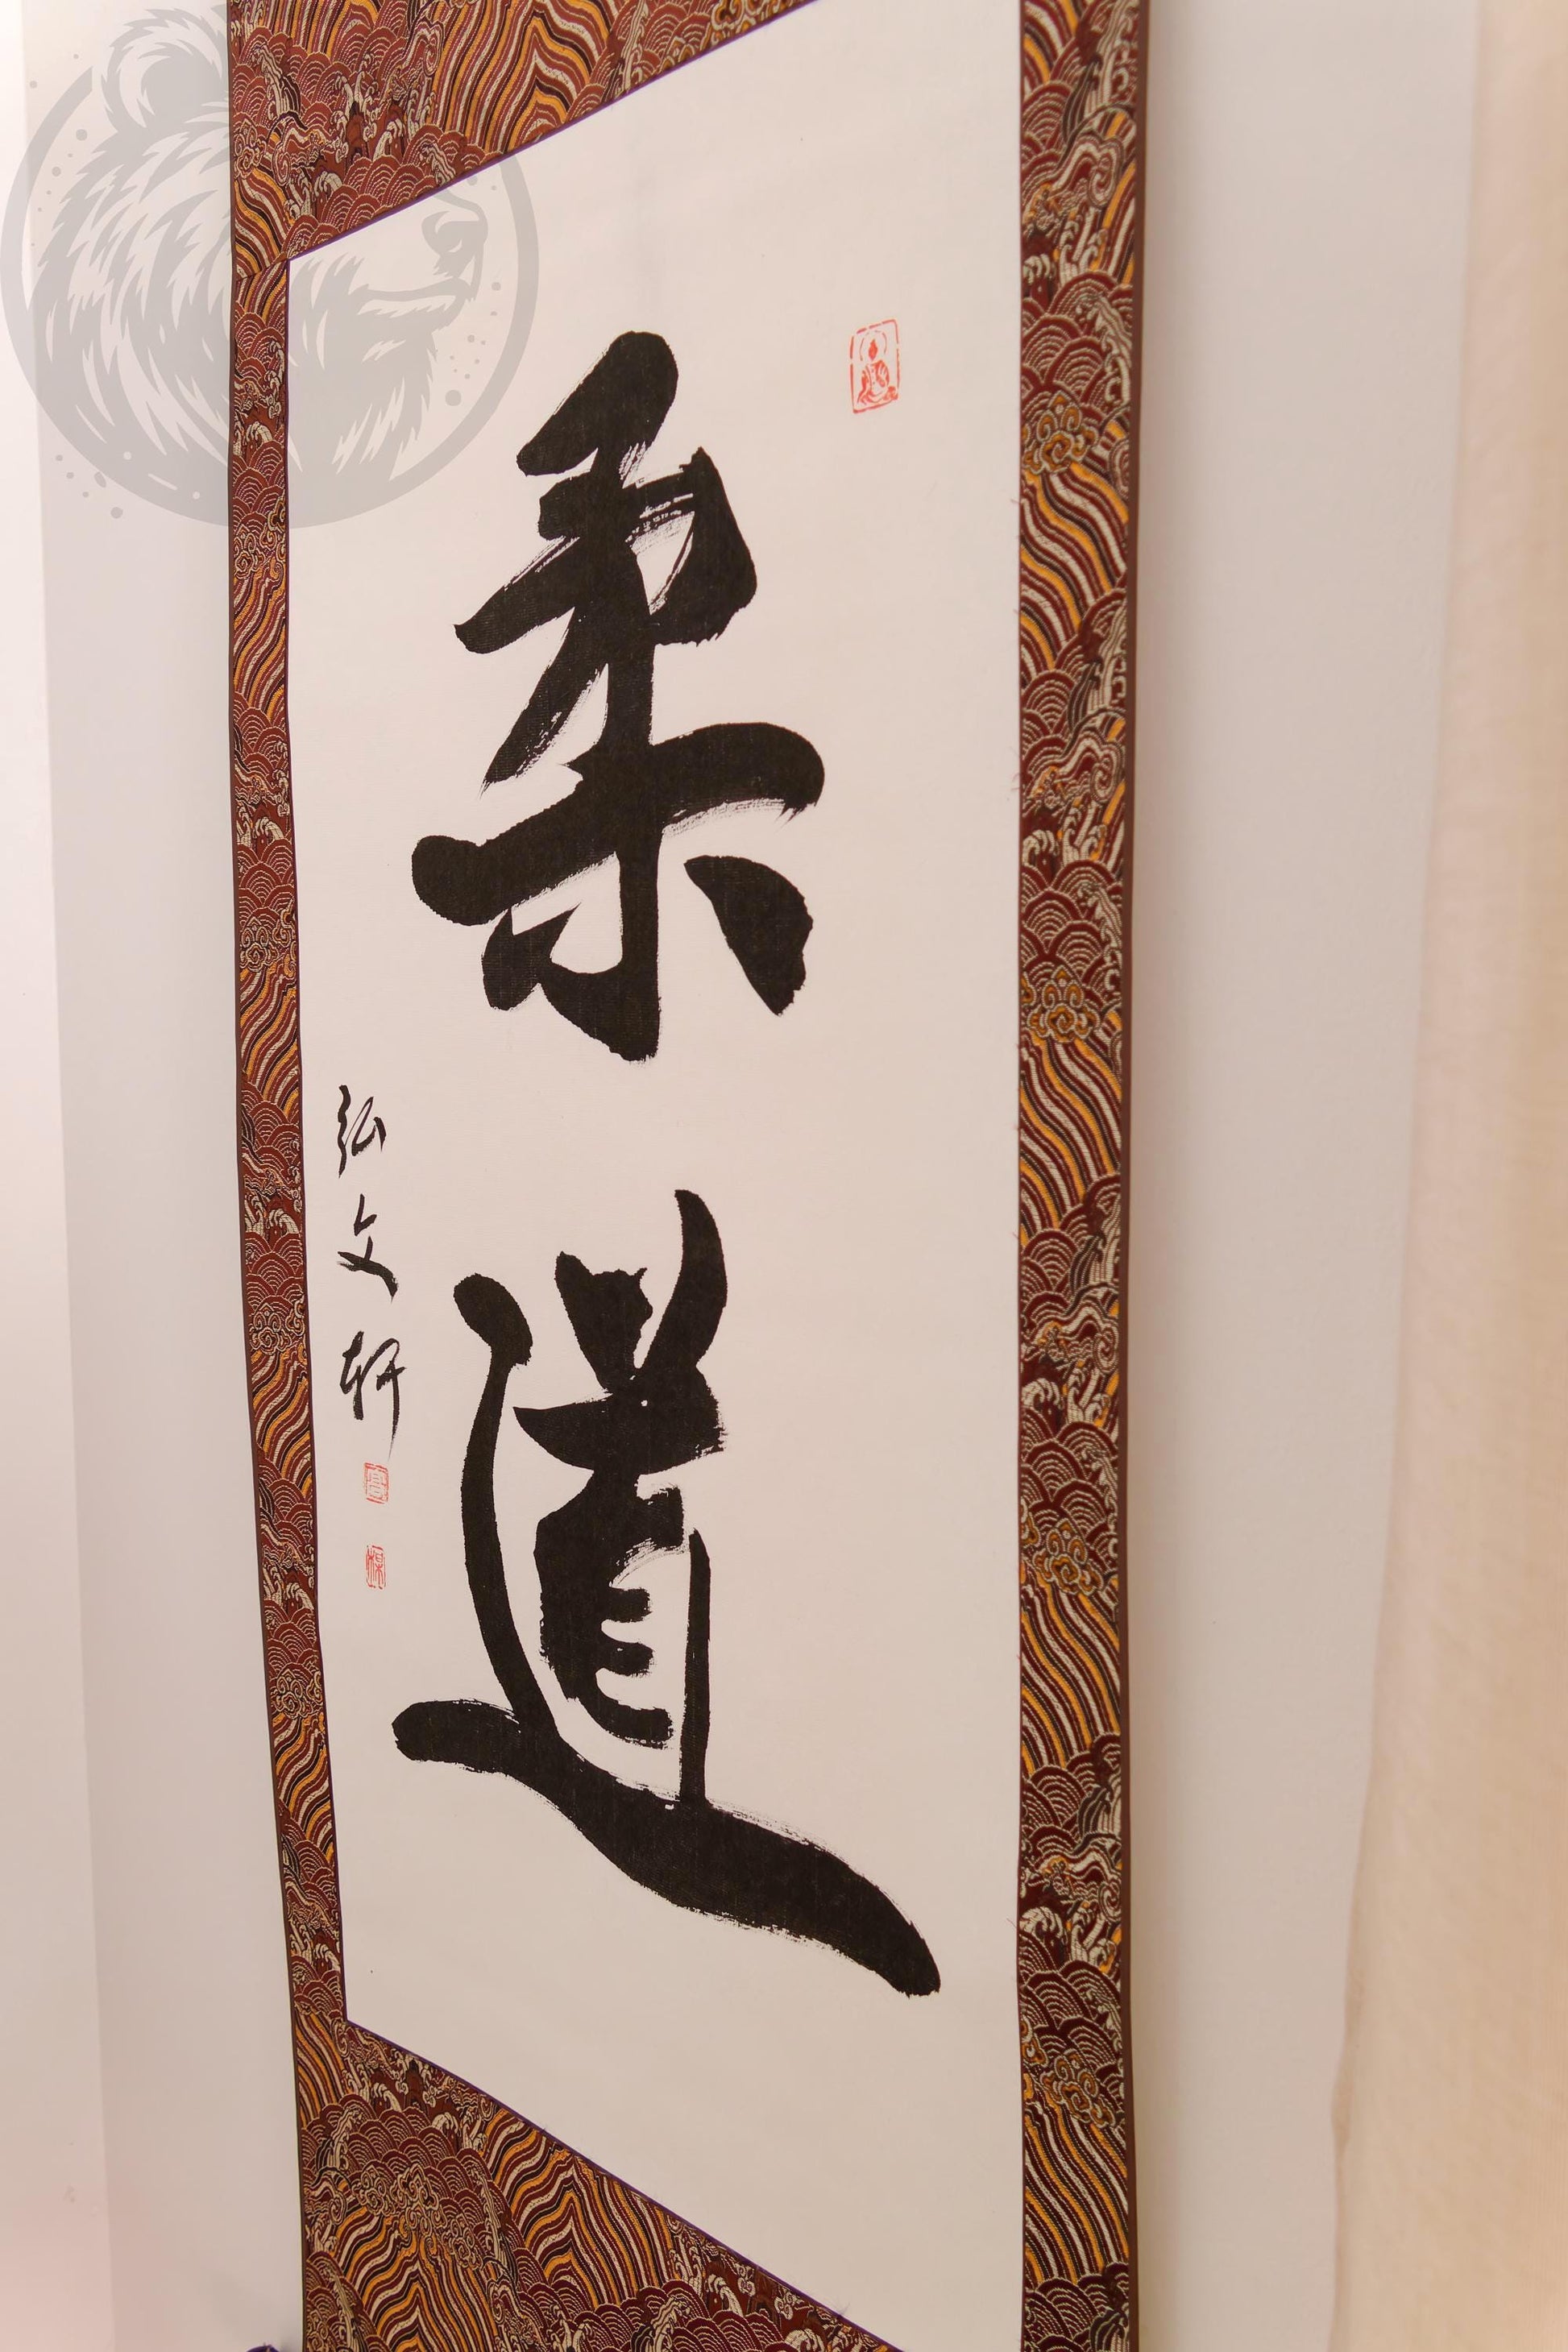 柔道
弘文軒